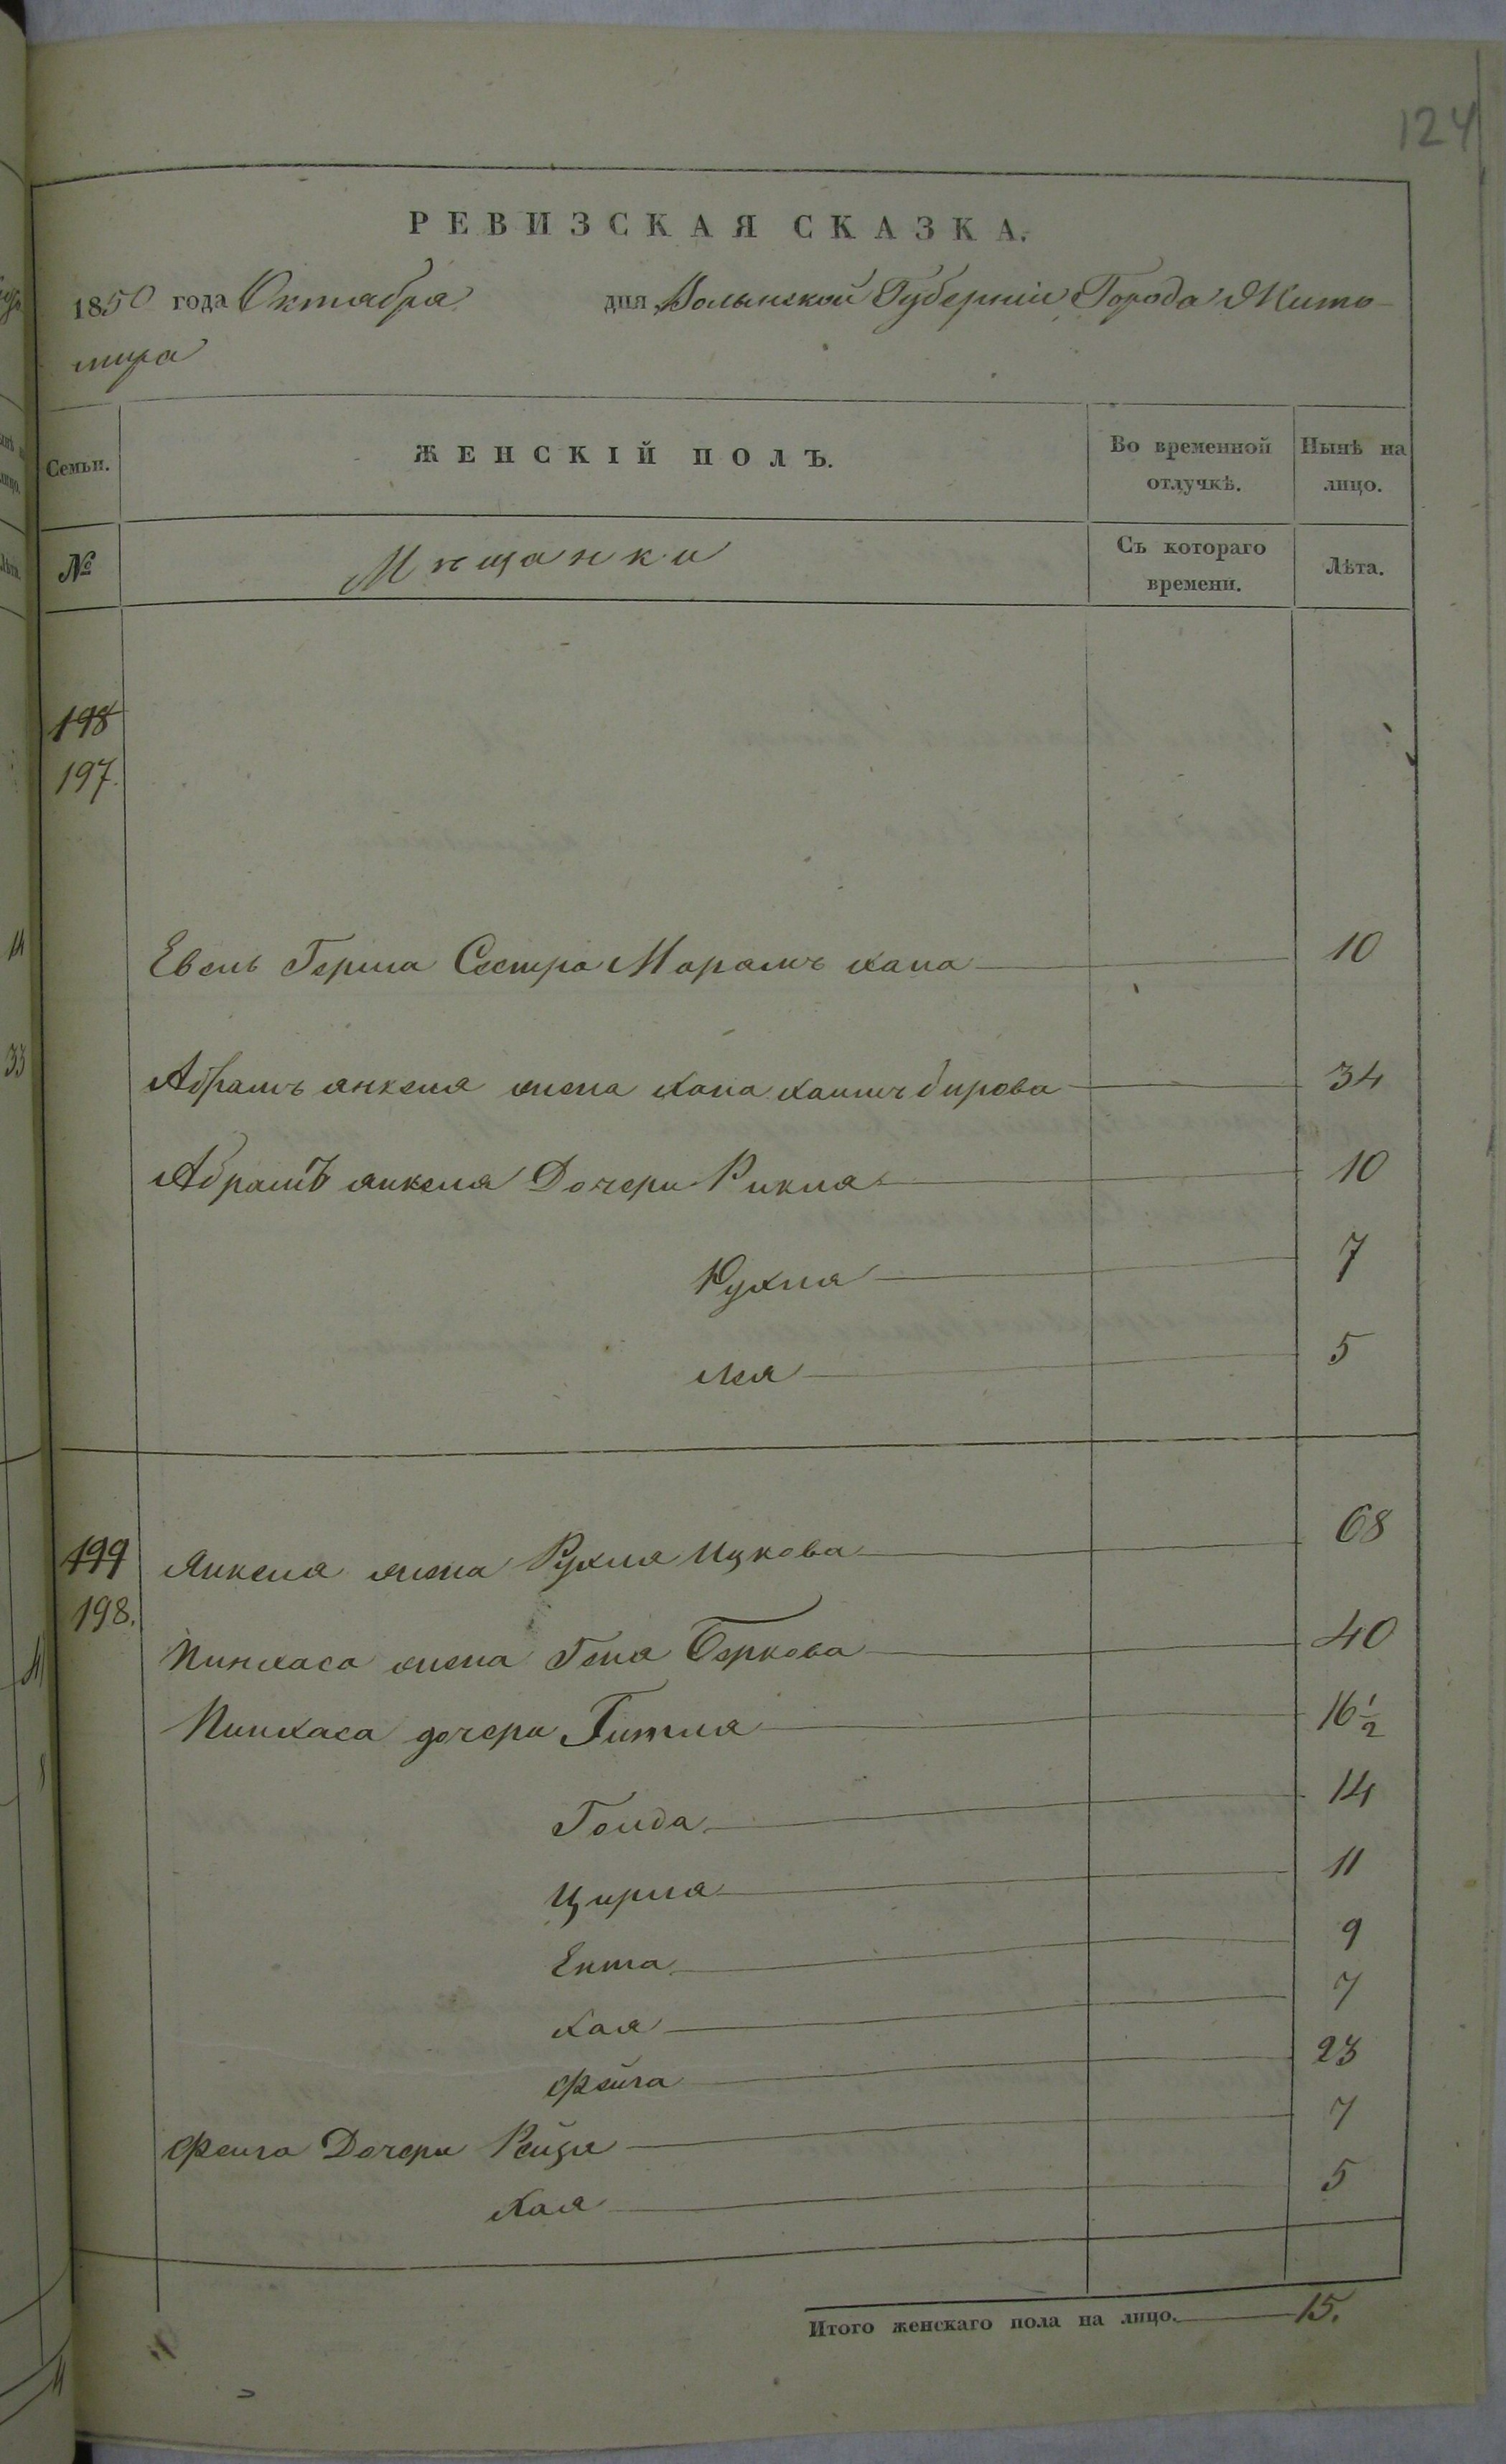 124
РЕВИЗСКАЯ СКАЗКА.
1850 года Октября дня Волынской Губерніи Города Жито-
мира
Семьи.
ЖЕНСКІЙ ПОЛЪ.
Во временной отлучкѣ.
Нынѣ на лицо.
№
Мѣщанки
Съ котораго времени.
Лѣта.
198
197.
Евель Герша Сестра Марамъ хана 10
Абрамъ янкеля жена хана хаимъ бирова 34
Абрамъ янкеля Дочери Рикля 10
Рухля 7
лея 5
199
198.
Янкеля жена Рухля Ицкова 68
Пинхаса жена Геня Беркова 40
Пинхаса дочери Гитля 16 1/2
Голда 14
Цирля 11
Ента 9
хая 7
Фейга 23
Фейга Дочери Рейзя 7
хая 5
Итого женскаго пола на лицо. 15.